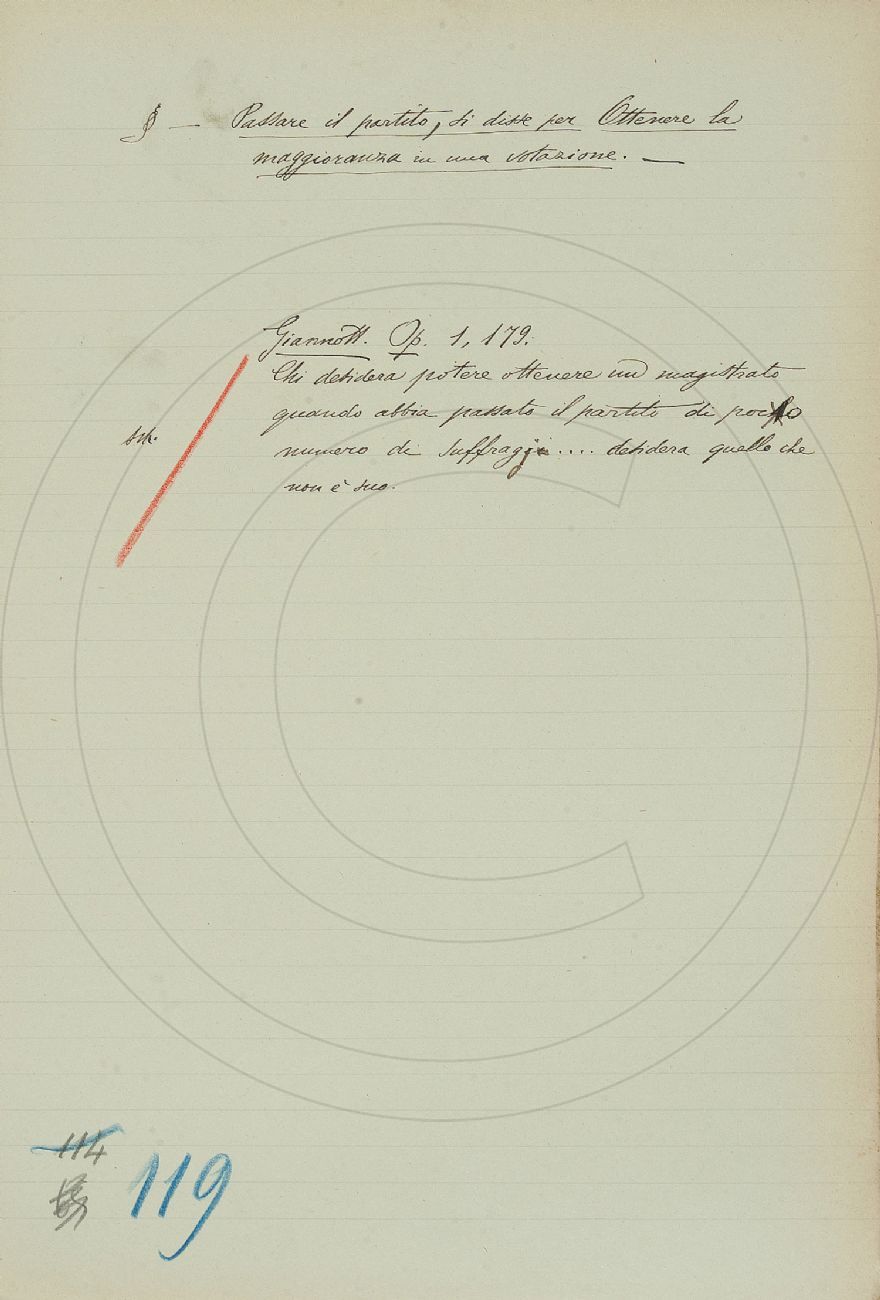 § — Passare il partito, si disse per Ottenere la
maggioranza in una votazione. —
Giannott. Op. 1, 179.
Chi desidera potere ottenere un magistrato
quando abbia passato il partito di poco
numero di suffragi .... desidera quello che
non è suo.
114
119